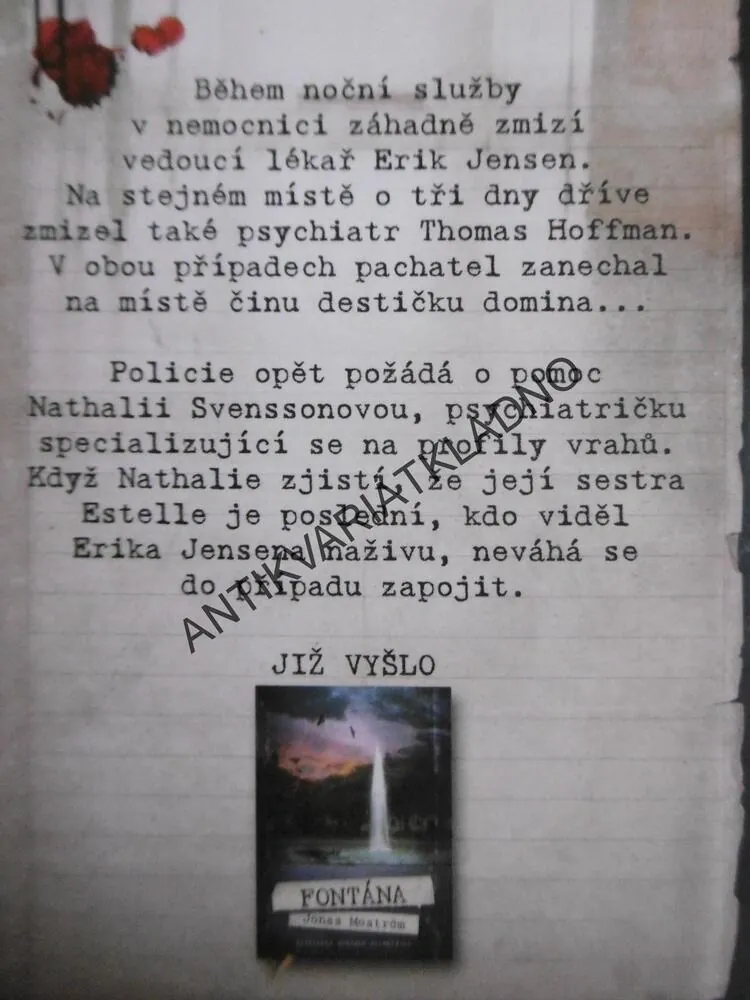 Během noční služby
v nemocnici záhadně zmizí
vedoucí lékař Erik Jensen.
Na stejném místě o tři dny dříve
zmizel také psychiatr Thomas Hoffman.
V obou případech pachatel zanechal
na místě činu destičku domina...
Policie opět požádá o pomoc
Nathalii Svenssonovou, psychiatričku
specializující se na profily vrahů.
Když Nathalie zjistí, že její sestra
Estelle je poslední, kdo viděl
Erika Jensena naživu, neváhá se
do případu zapojit.
ANTIKVARIATKLADNO
JIŽ VYŠLO
FONTÁNA
Jonas Moström